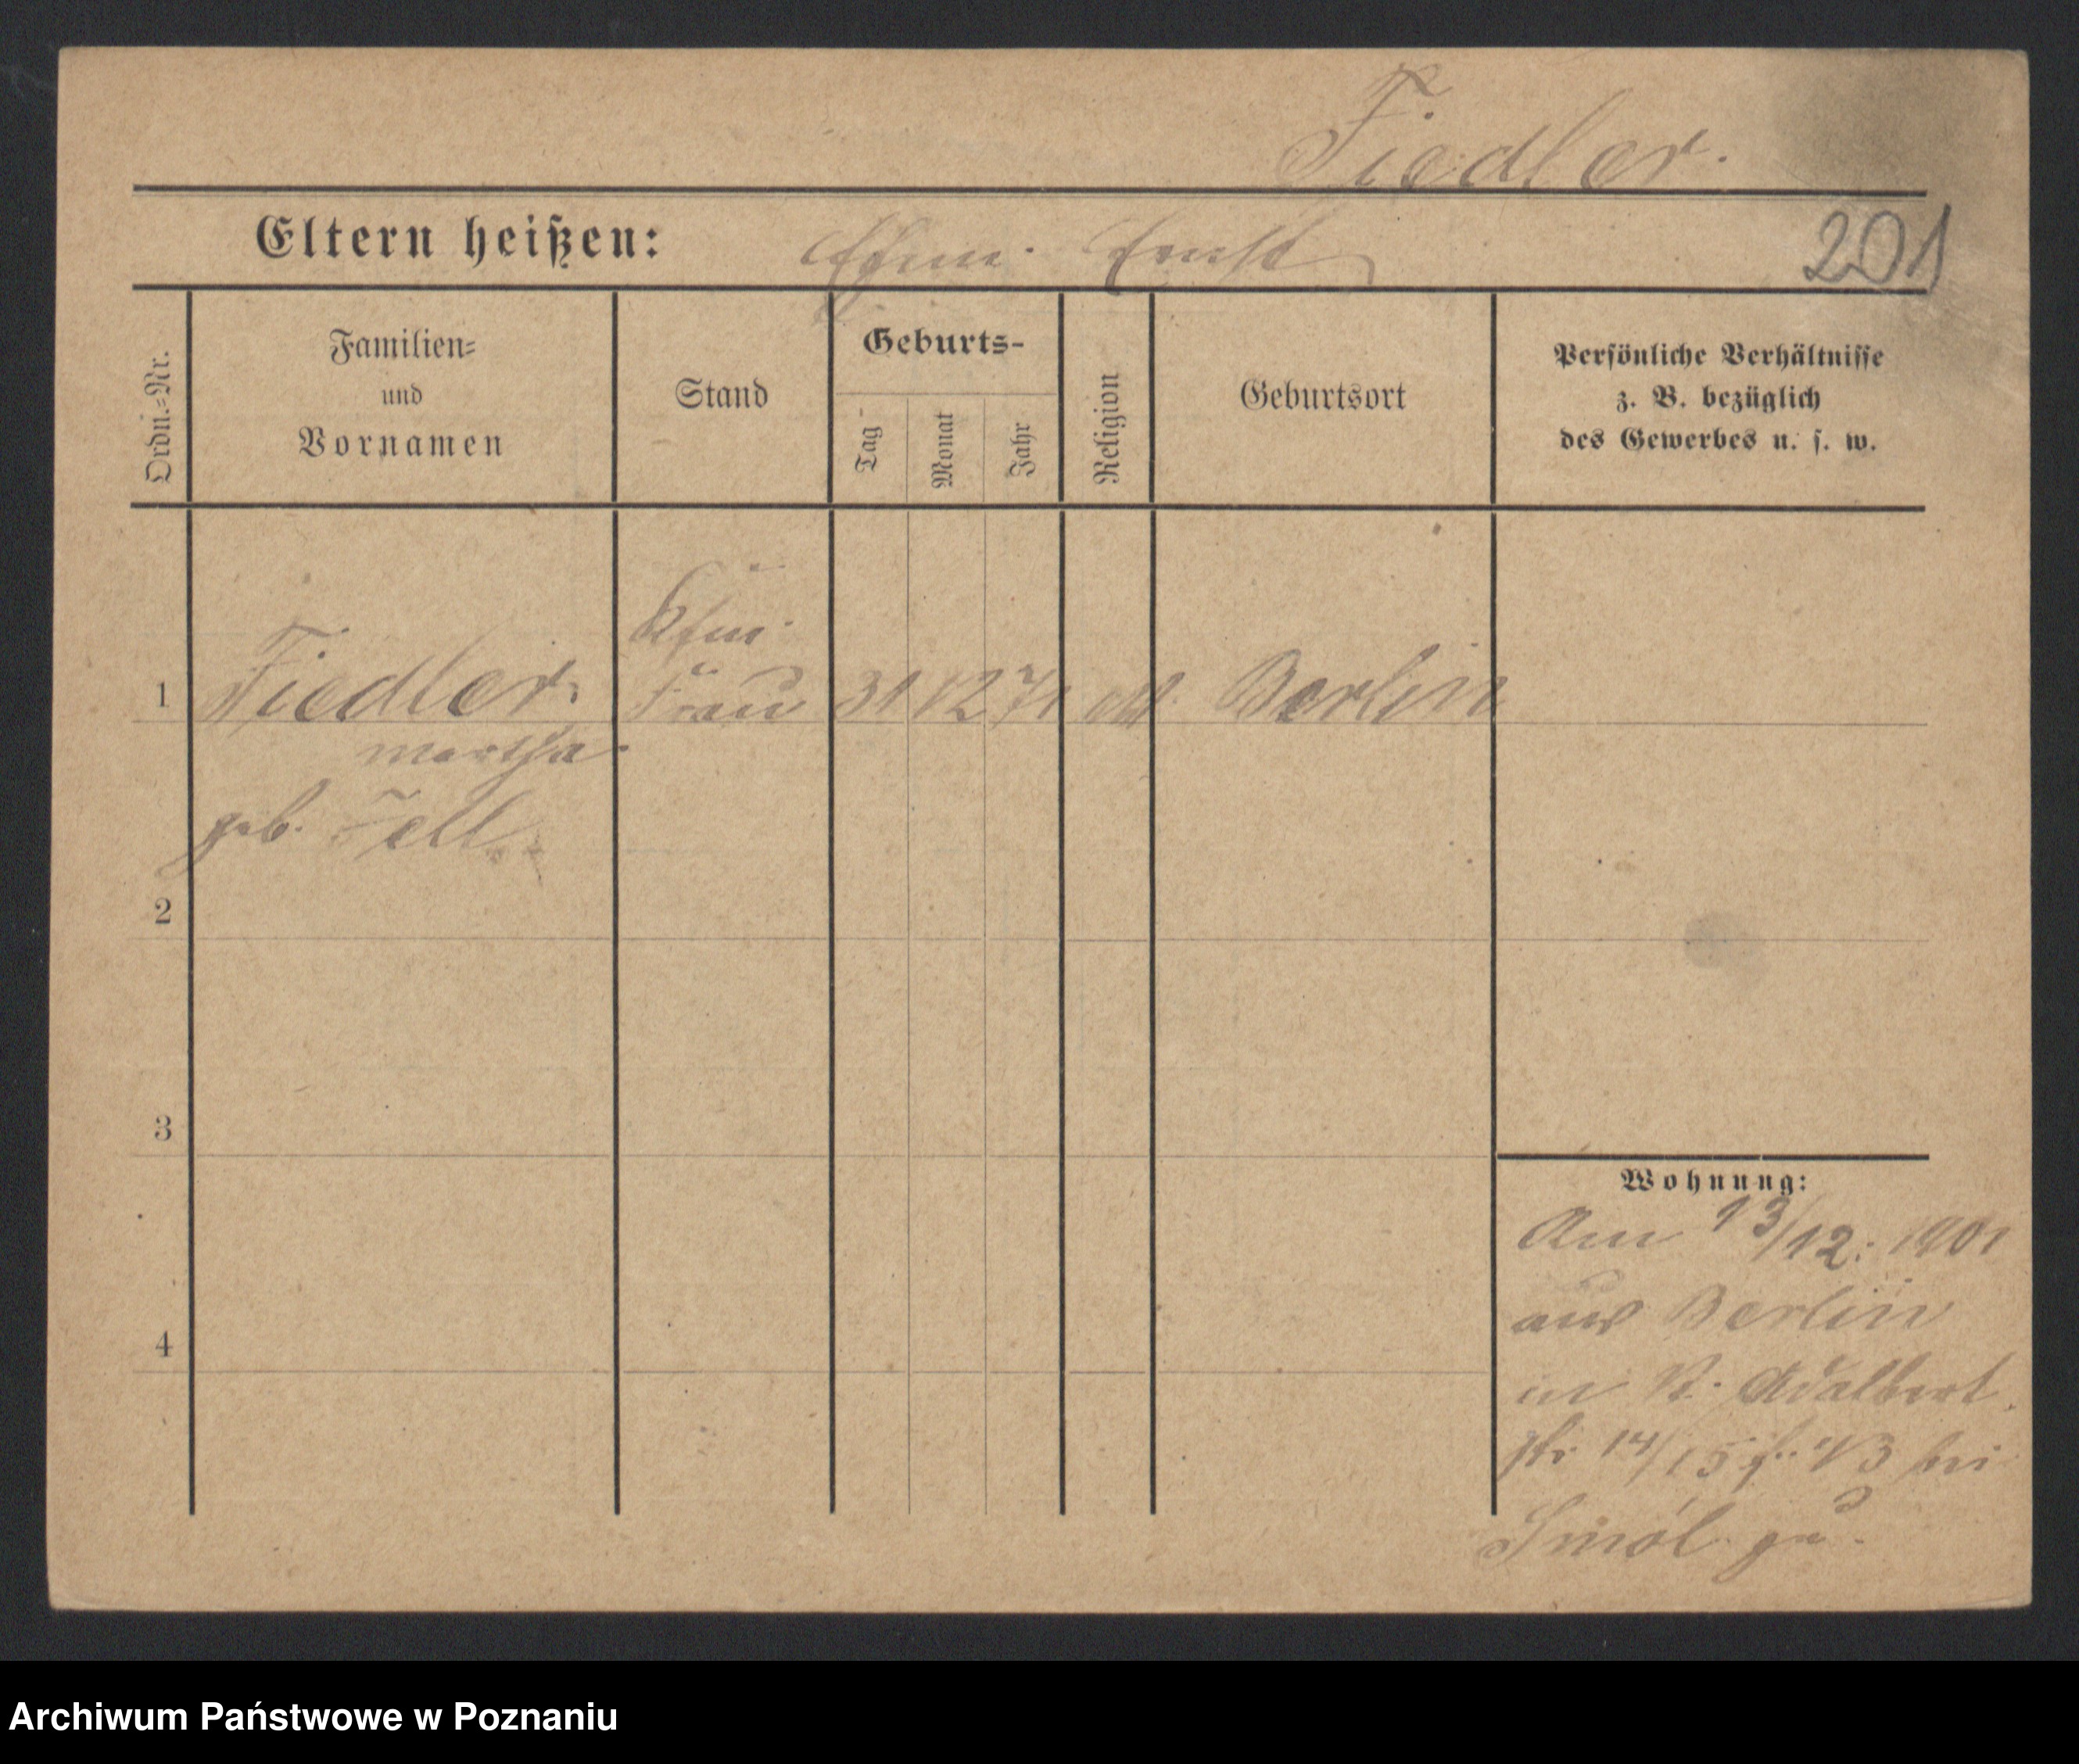 Fiedler.
Eltern heißen: Ehem. Ernst
201
Ordn.=Nr.
Familien=
und
Vornamen
Stand
Geburts-
Tag
Monat
Jahr
Religion
Geburtsort
Persönliche Verhältnisse
z. B. bezüglich
des Gewerbes u. s. w.
Kfm.
1 Fiedler. Frau 31 12 71 Berlin
Martha
geb. Fell
2
3
4
Wohnung:
Am 13/12. 1901
aus Berlin
in St. Adalbert
str 14/15 bei
Smól
Archiwum Państwowe w Poznaniu